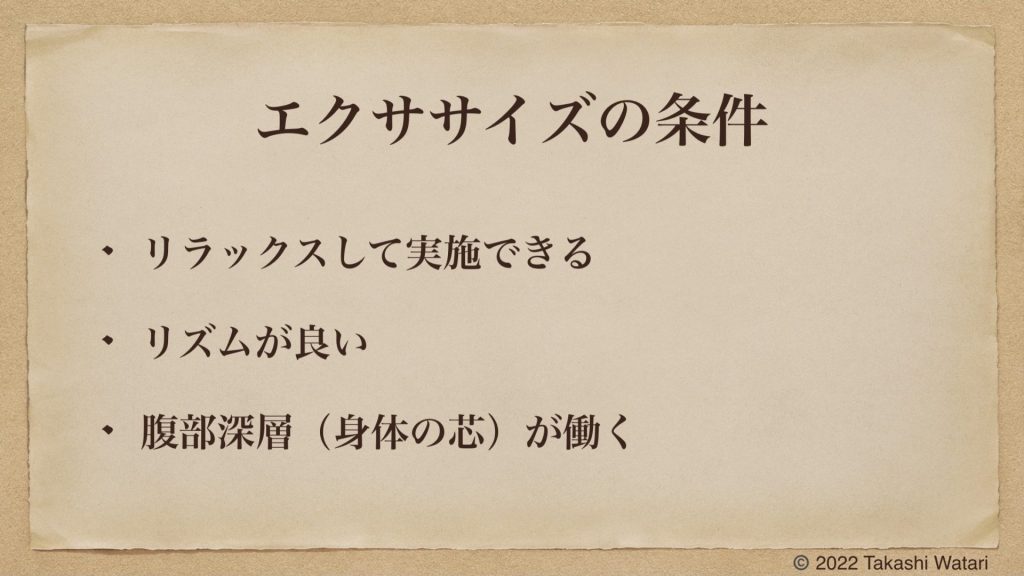 エクササイズの条件
・ リラックスして実施できる
・ リズムが良い
・ 腹部深層（身体の芯）が働く
© 2022 Takashi Watari